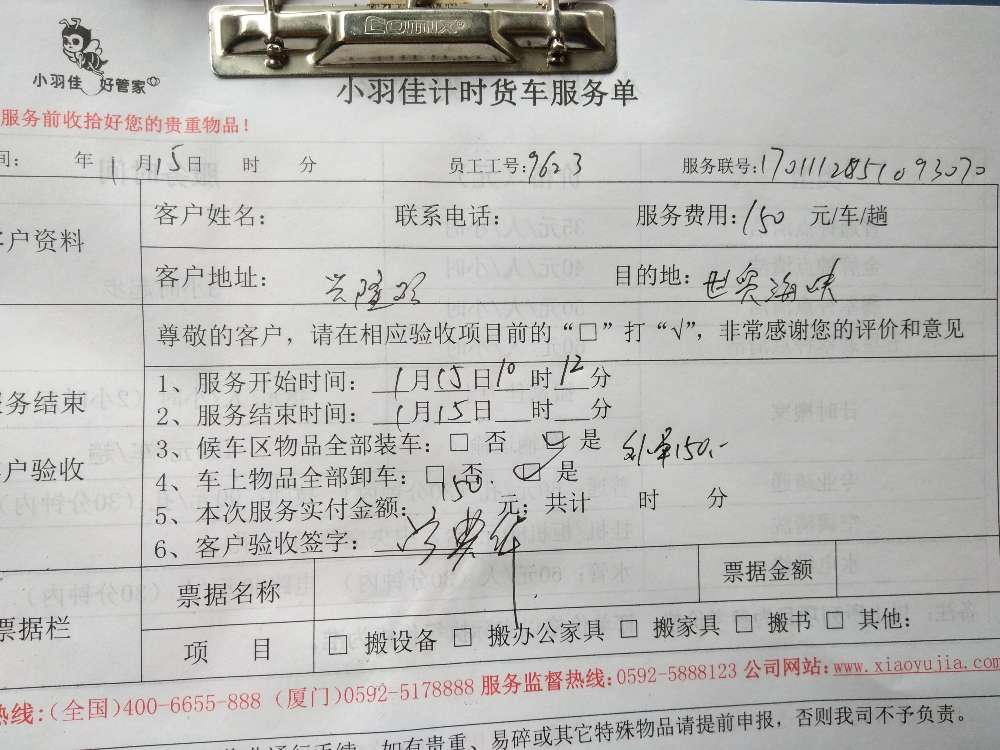 Comix
小羽佳 好管家
小羽佳计时货车服务单
服务前收拾好您的贵重物品！
间： 年1月15日 时 分 员工工号：9623 服务联号：1701112851093070
户资料 客户姓名： 联系电话： 服务费用：150 元/车/趟
客户地址： 兴隆路 目的地： 世贸海峡
尊敬的客户，请在相应验收项目前的“□”打“√”，非常感谢您的评价和意见
务结束
户验收
1、服务开始时间：1月15日10时12分
2、服务结束时间：1月15日 时 分
3、候车区物品全部装车：□ 否 ☑ 是
4、车上物品全部卸车：□ 否 ☑ 是 150.-
5、本次服务实付金额：150元；共计 时 分
6、客户验收签字：
票据栏 票据名称 票据金额
项 目 □ 搬设备 □ 搬办公家具 □ 搬家具 □ 搬书 □ 其他：
热线：(全国)400-6655-888 (厦门)0592-5178888 服务监督热线：0592-5888123 公司网站：www.xiaoyujia.com
如有贵重、易碎或其它特殊物品请提前申报，否则我司不予负责。